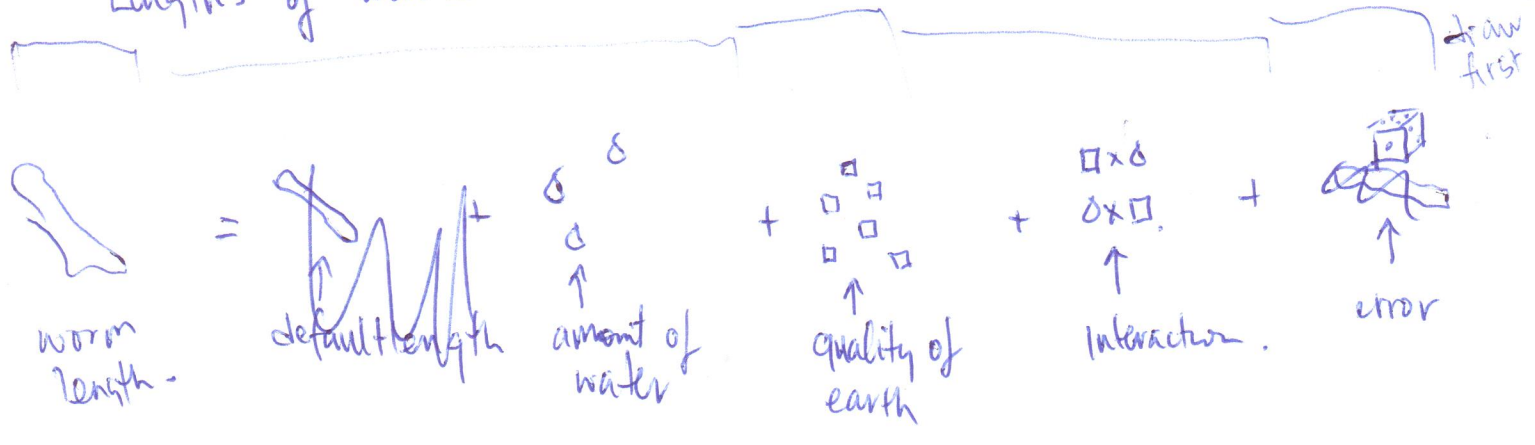 Lengths of
draw
first
= + + + +
□ x δ
δ x □.
worm
length.
default length
amount of
water
quality of
earth
Interaction.
error